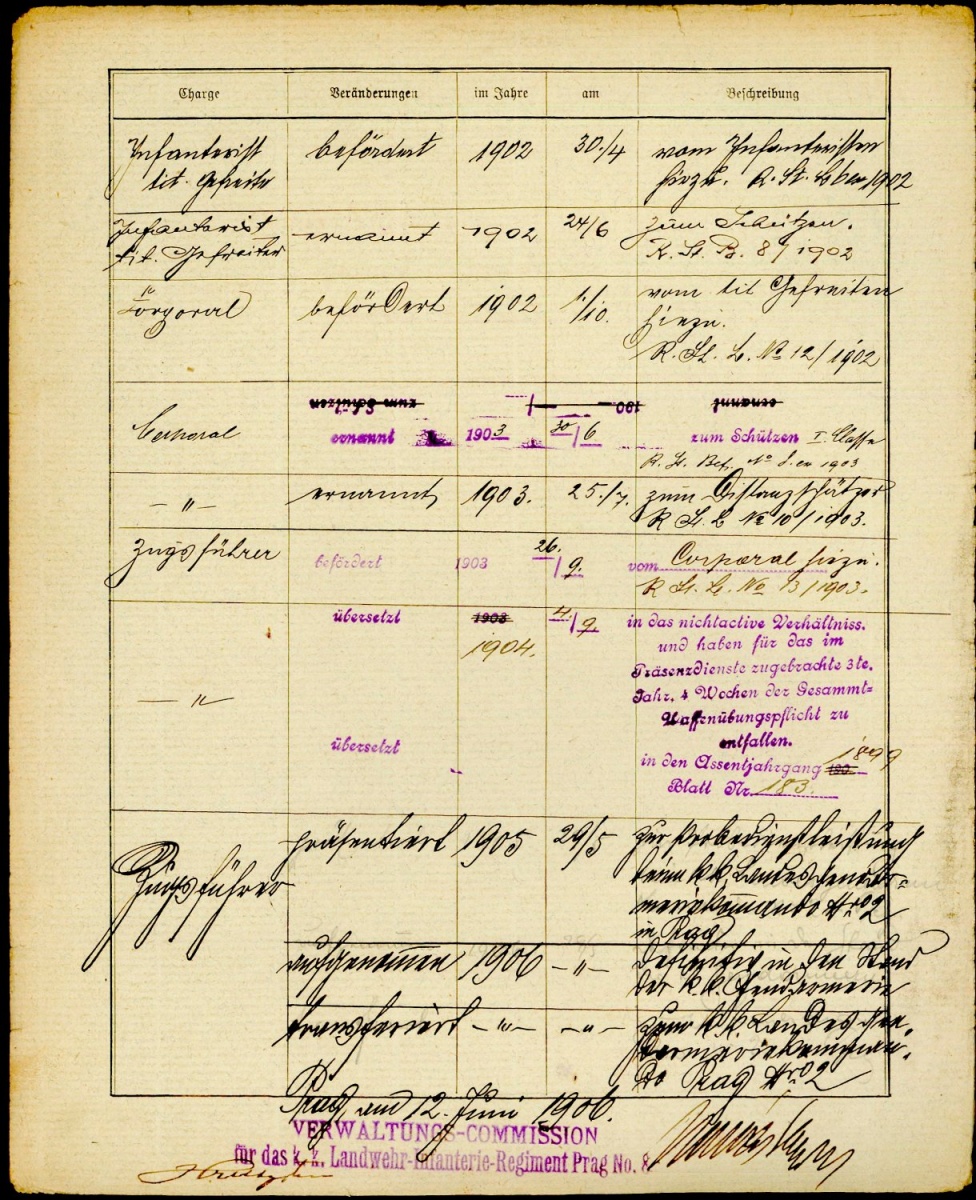 Charge Veränderungen im Jahre am Beschreibung
Infanterist befördert 1902 30./4 vom Infanteristen
tit. Gefreiter hiezu. R. St. B. 6 ex 1902
Infanterist ernannt 1902 24/6 zum Schützen.
tit. Gefreiter R. St. B. 8 / 1902
Korporal befördert 1902 1./10. vom tit Gefreiten
hiezu.
R. St. B. No 12 / 1902
zum Schützen 190 ernannt
Corporal ernannt 1903 30/6 zum Schützen I. Classe
R. St. Bef. No 8 ex 1903
-"- ernannt 1903. 25./7. zum Distanzschätzer
R. St. B. No 10 / 1903.
Zugsführer befördert 1903 26./9. vom Corporal hiezu.
R. St. B. No 13 / 1903.
übersetzt 1903 /9. in das nichtactive Verhältniss.
1904. und haben für das im
Präsenzdienste zugebrachte 3te.
-"- Jahr, 4 Wochen der Gesammt=
Waffenübungspflicht zu
entfallen.
übersetzt in den Assentjahrgang 190 1899
Blatt Nr. 183.
Zugsführer präsentiert 1905 29/5 zur Probedienstleistung
beim k.k. Landesgendar=
meriekommando Nro 2
in Prag
aufgenommen 1906 -"- definitiv in den Stand
der k. k. Gendarmerie
transferiert -"- -"- zum k.k. Landesgen=
darmeriekomman=
do Prag Nro 2
Prag am 12. Juni 1906.
VERWALTUNGS-COMMISSION
für das k. k. Landwehr-Infanterie-Regiment Prag No. 8